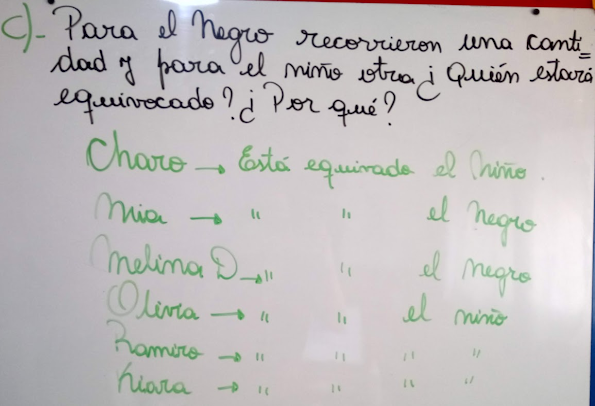 c)- Para el Negro recorrieron una canti=
dad y para el niño otra ¿ Quién estará
equivocado? ¿ Por qué?
Charo → Está equivado el Niño.
Mia → " " el Negro
Melina D → " " el negro
Olivia → " " el niño
Ramiro → " " " "
Kiara → " " " "